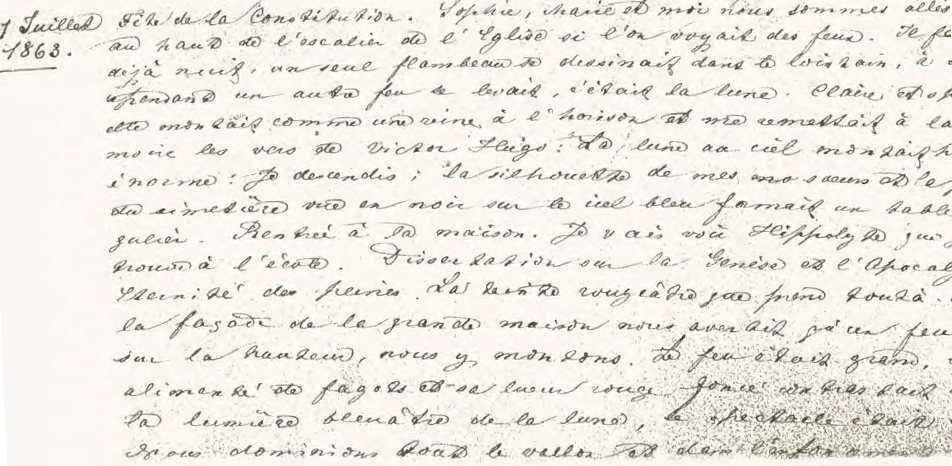 1 Juillet Fête de la Constitution. Sophie, Marie et moi nous sommes allés
1863. au haut de l'escalier de l'Eglise si l'on voyait des feux. Il
déjà nuit, un seul flambeau se dessinait dans le lointain, à
cependant un autre feu se levait, c'était la lune. Claire et
elle montait comme une reine à l'horison et me remettait à la
moire les vers de Victor Hugo: La lune au ciel montait
énorme: Je descendis; la silhouette de mes sœurs et le
du cimetière vue en noir sur le ciel bleu formait un
gulier. Rentré à la maison. Je vais voir Hippolyte que
trouve à l'école. Dissertation sur la Genèse et l'Apocal
éternité des peines. La teinte rougeâtre que prend tout à
la façade de la grande maison nous avertit qu'un feu
sur la hauteur, nous y montons. Le feu était grand,
alimenté de fagots et sa lueur rouge foncé contrastait
la lumière bleuâtre de la lune, le spectacle était
Nous dominions tout le vallon et dans